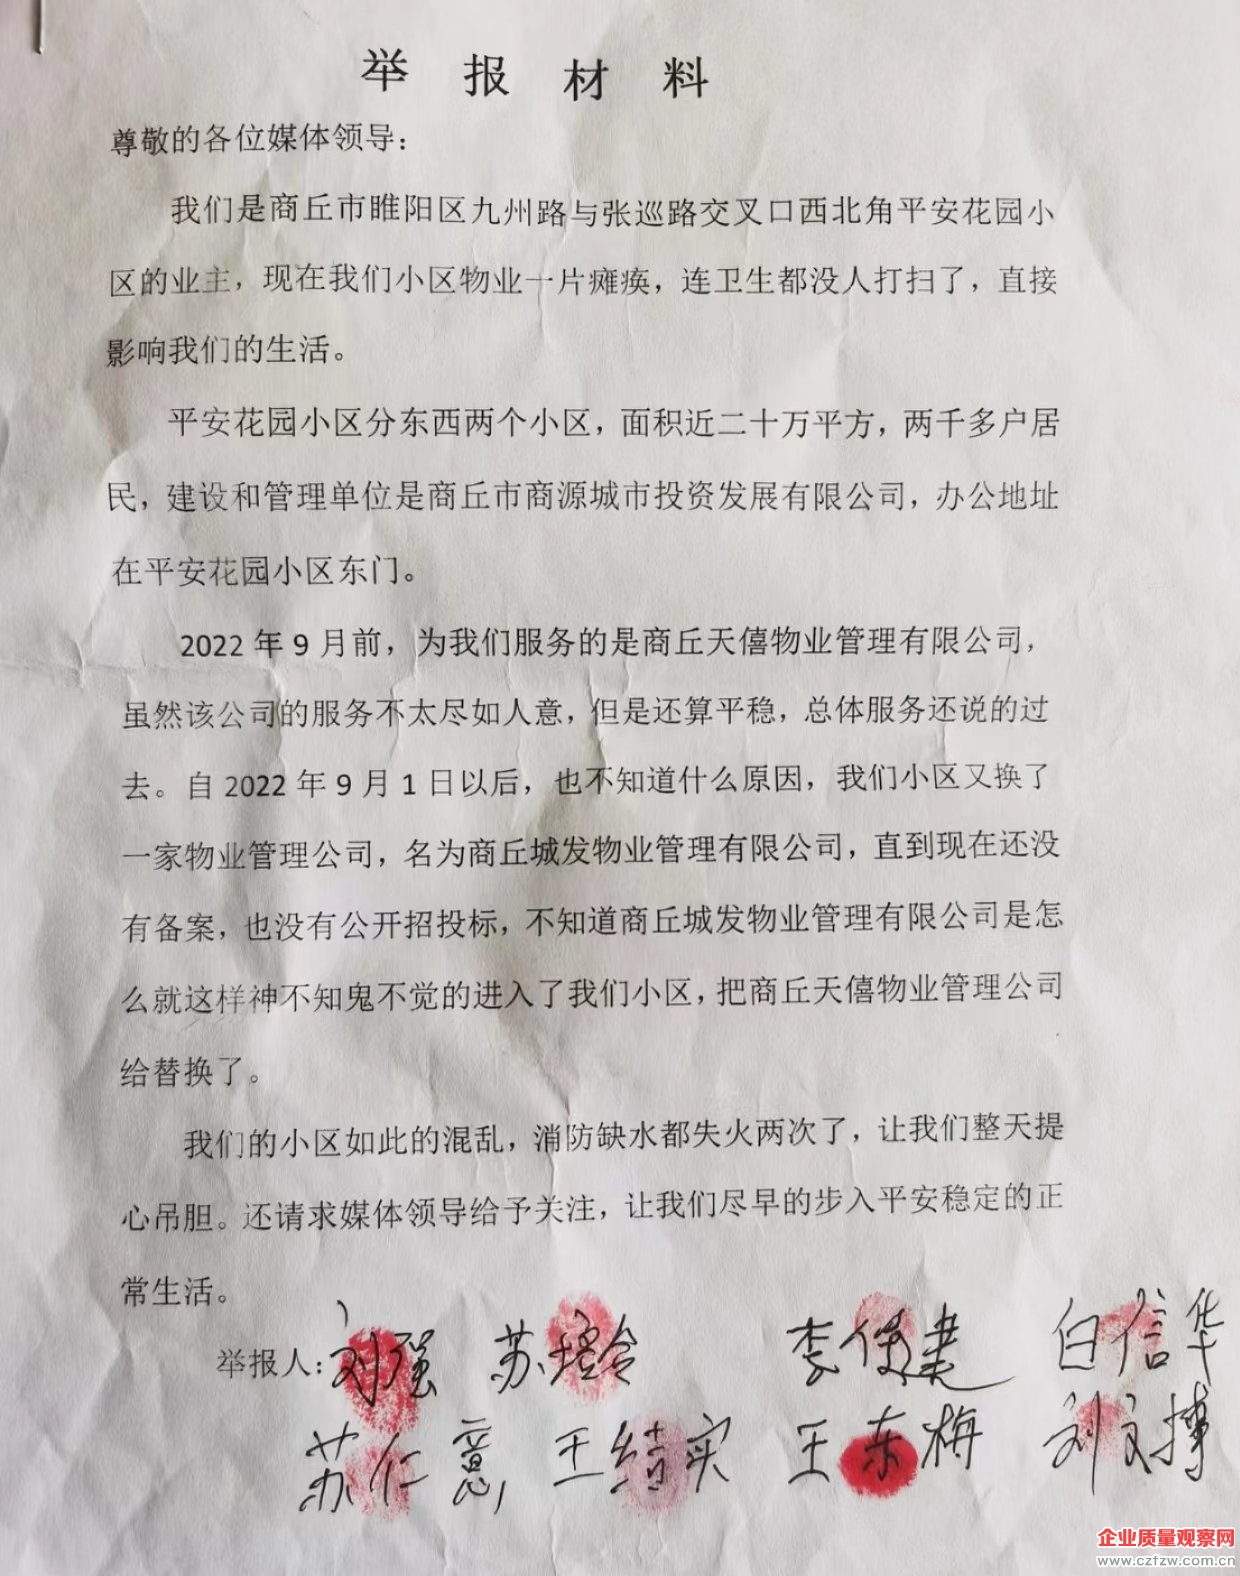 举报材料
尊敬的各位媒体领导：
我们是商丘市睢阳区九州路与张巡路交叉口西北角平安花园小
区的业主，现在我们小区物业一片瘫痪，连卫生都没人打扫了，直接
影响我们的生活。
平安花园小区分东西两个小区，面积近二十万平方，两千多户居
民，建设和管理单位是商丘市商源城市投资发展有限公司，办公地址
在平安花园小区东门。
2022年9月前，为我们服务的是商丘天僖物业管理有限公司，
虽然该公司的服务不太尽如人意，但是还算平稳，总体服务还说的过
去。自2022年9月1日以后，也不知道什么原因，我们小区又换了
一家物业管理公司，名为商丘城发物业管理有限公司，直到现在还没
有备案，也没有公开招投标，不知道商丘城发物业管理有限公司是怎
么就这样神不知鬼不觉的进入了我们小区，把商丘天僖物业管理公司
给替换了。
我们的小区如此的混乱，消防缺水都失火两次了，让我们整天提
心吊胆。还请求媒体领导给予关注，让我们尽早的步入平安稳定的正
常生活。
举报人：刘强 李俊建 白信华
苏仁意 王结实 王东梅 刘文博
企业质量观察网
www.czfzw.com.cn